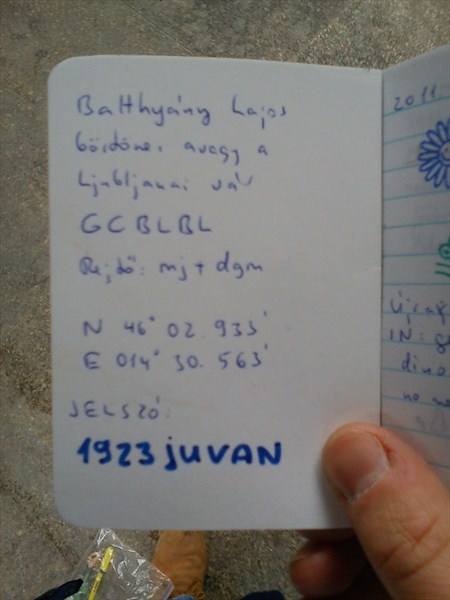 Batthyány Lajos
börtöne, avagy a
Ljubljanai vár
GCBLBL
Rejtő: mj + dgm
N 46° 02.933'
E 014° 30.563'
JELSZÓ:
1923 JUVAN
2011.
IN:
dino